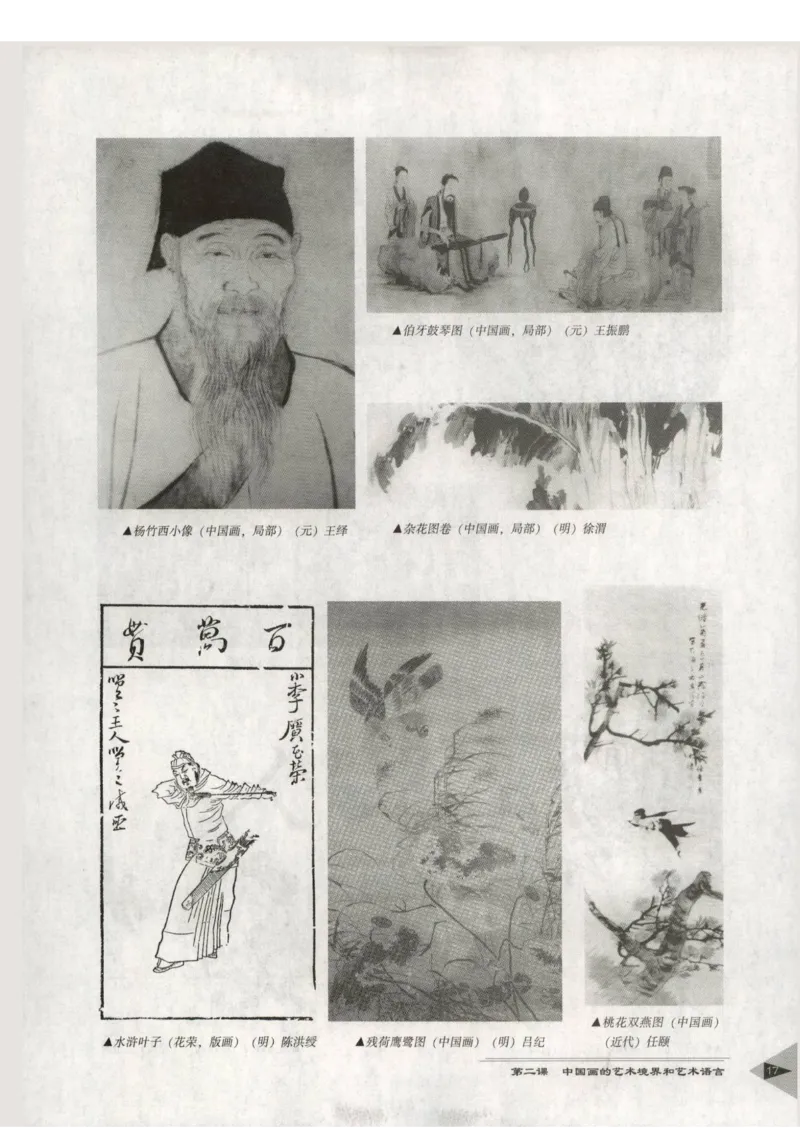 ▲伯牙鼓琴图（中国画，局部）（元）王振鹏
▲杨竹西小像（中国画，局部）（元）王绎
▲杂花图卷（中国画，局部）（明）徐渭
百萬貫
小李廣花榮
▲水浒叶子（花荣，版画）（明）陈洪绶
▲残荷鹰鹭图（中国画）（明）吕纪
▲桃花双燕图（中国画）
（近代）任颐
第二课 中国画的艺术境界和艺术语言
17